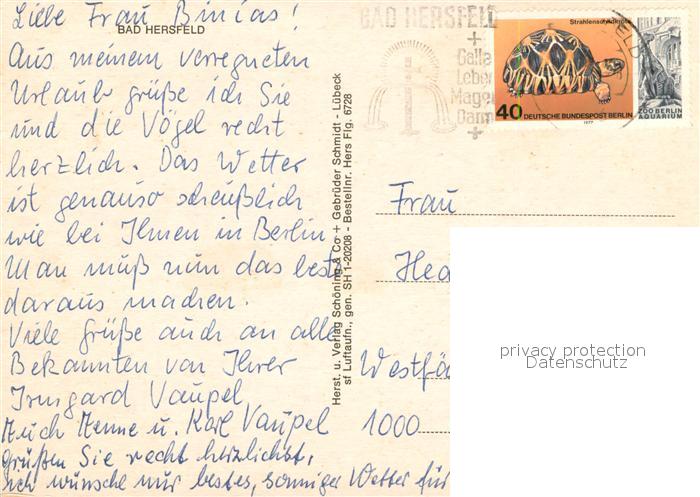 Liebe Frau Binias!
BAD HERSFELD
Aus meinem verregneten
Urlaub grüße ich Sie
und die Vögel recht
herzlich. Das Wetter
ist genauso scheußlich
wie bei Ihnen in Berlin
Man muß nun das beste
daraus machen.
Viele Grüße auch an alle
Bekannten von Ihrer
Irmgard Vaupel
Auch Menne u. Karl Vaupel
grüßen Sie recht herzlichst,
ich wünsche nur bestes, sonniges Wetter für
Herst. u. Verlag Schöning & Co + Gebrüder Schmidt - Lübeck
sf Luftaufn., gen. SH 1-20208 - Bestellnr. Hers Flg. 6728
BAD HERSFELD
Galle
Leber
Magen
Darm
Strahlenschildkröte
40 DEUTSCHE BUNDESPOST BERLIN
1977
ZOO BERLIN
AQUARIUM
Frau
Hed
Westfä
1000
privacy protection
Datenschutz